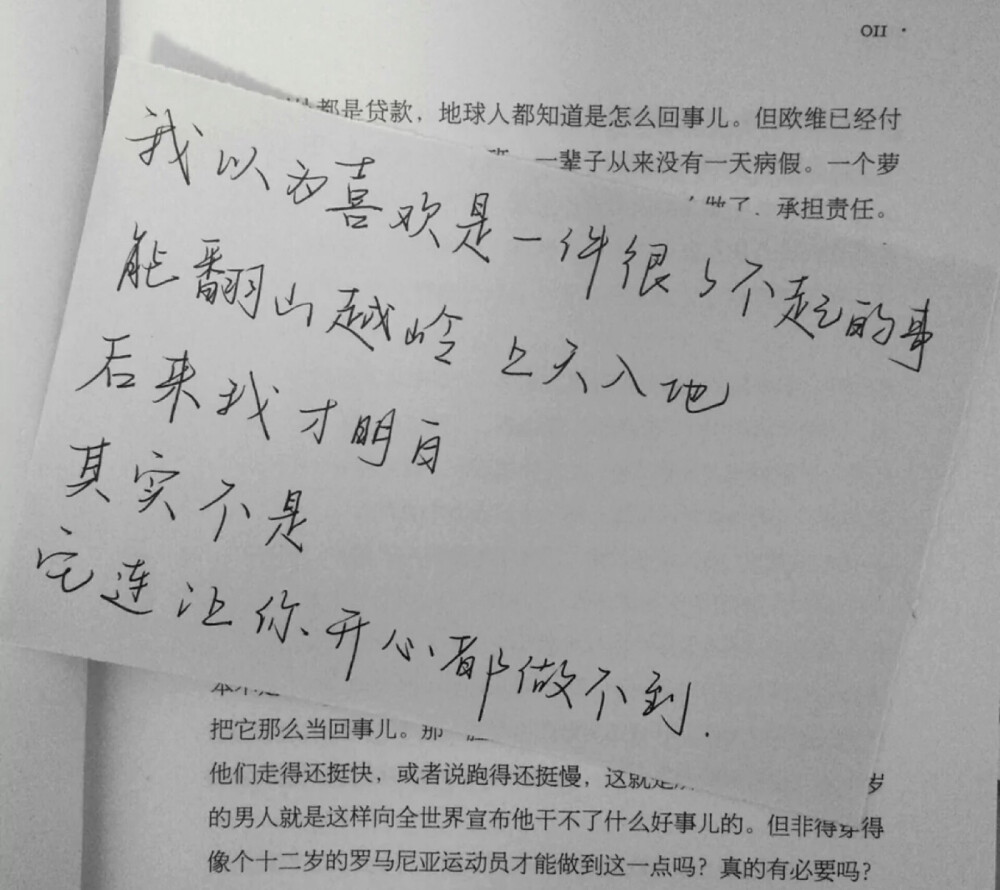 011 ·
都是贷款，地球人都知道是怎么回事儿。但欧维已经付
一辈子从来没有一天病假。一个萝
承担责任。
我以为喜欢是一件很了不起的事
能翻山越岭 上天入地
后来我才明白
其实不是
它连让你开心都做不到.
把它那么当回事儿。那
他们走得还挺快，或者说跑得还挺慢，这就是 岁
的男人就是这样向全世界宣布他干不了什么好事儿的。但非得穿得
像个十二岁的罗马尼亚运动员才能做到这一点吗？真的有必要吗？